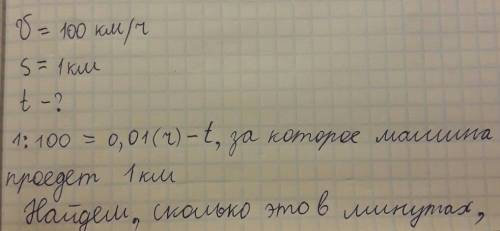 v = 100 км/ч
s = 1 км
t - ?
1:100 = 0,01 (ч) - t, за которое машина
проедет 1 км
Найдем, сколько это в минутах,